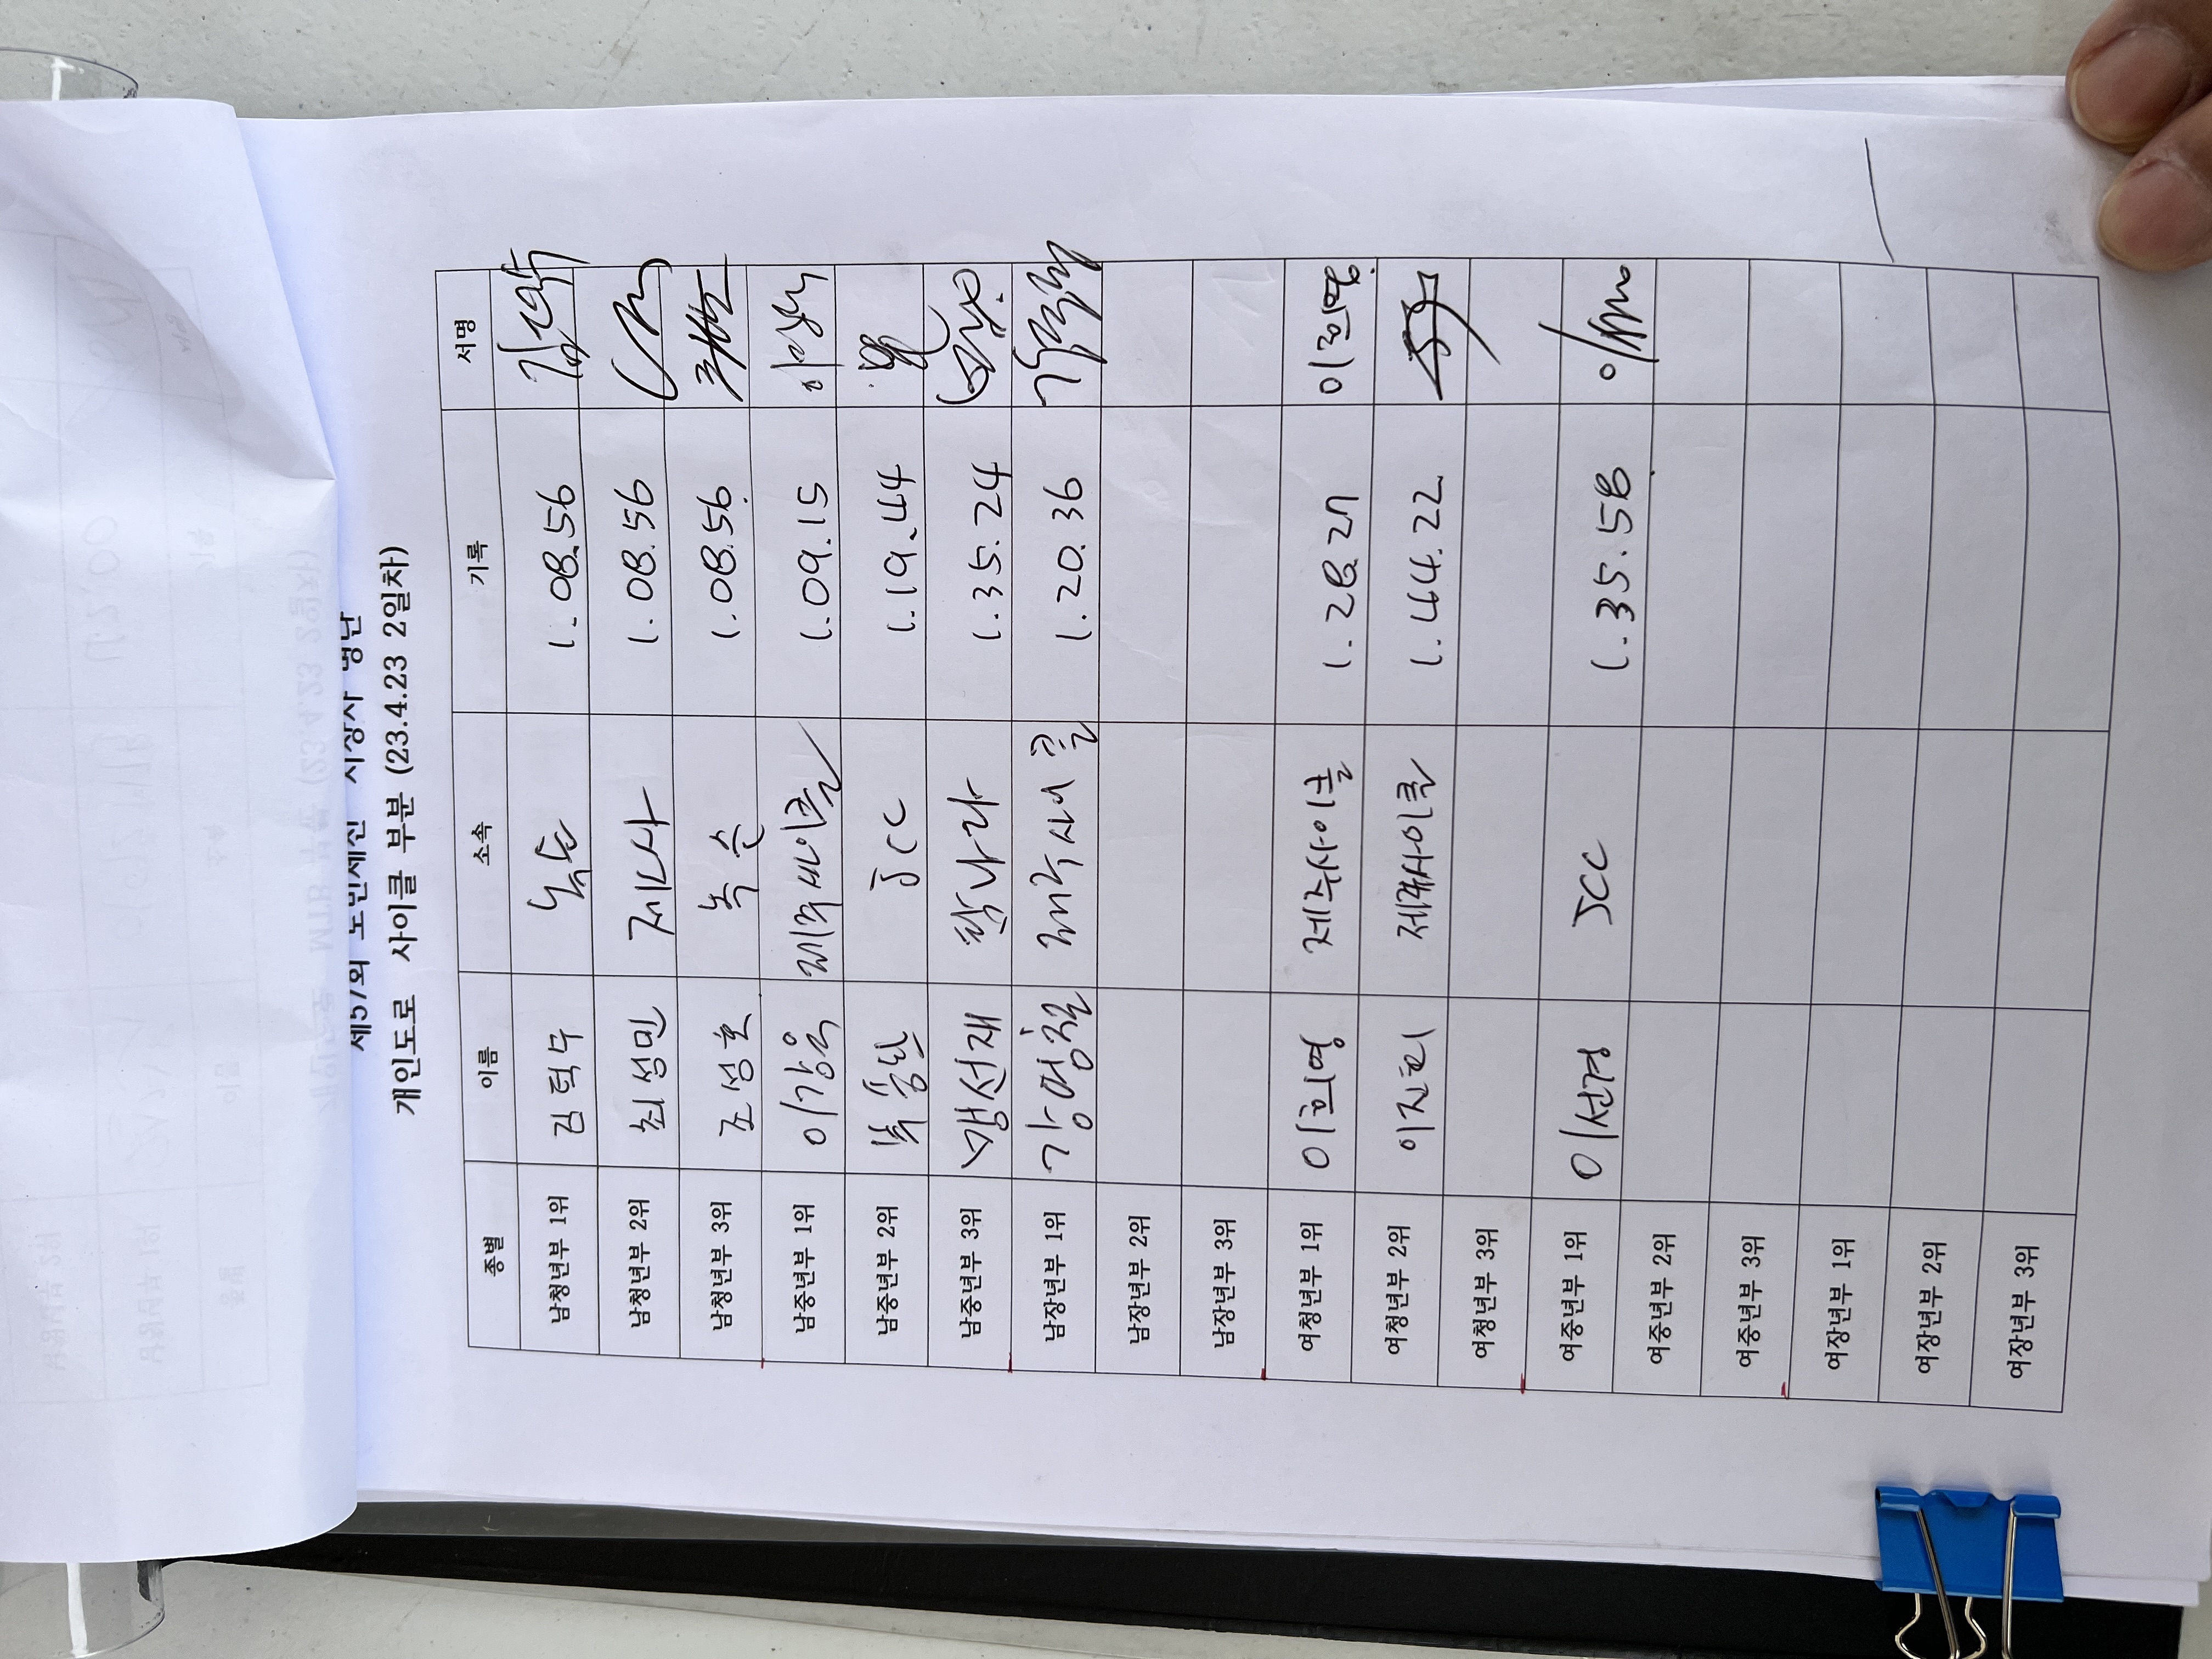 제57회 도민체전 시상자 명단
개인도로 사이클 부분 (23.4.23 2일차)
종별 이름 소속 기록 서명
남청년부 1위 김덕두 녹손 1.08.56
남청년부 2위 최성민 제나 1.08.56
남청년부 3위 조성호 녹손 1.08.56
남중년부 1위 이강욱 제주싸이클 1.09.15
남중년부 2위 JCC 1.19.44
남중년부 3위 선재 1.35.24
남장년부 1위 강영철 제주사이클 1.20.36
남장년부 2위
남장년부 3위
여청년부 1위 이희영 제주사이클 1.28.27 이희영
여청년부 2위 이진희 제주사이클 1.44.22
여청년부 3위
여중년부 1위 이선경 JCC 1.35.58
여중년부 2위
여중년부 3위
여장년부 1위
여장년부 2위
여장년부 3위